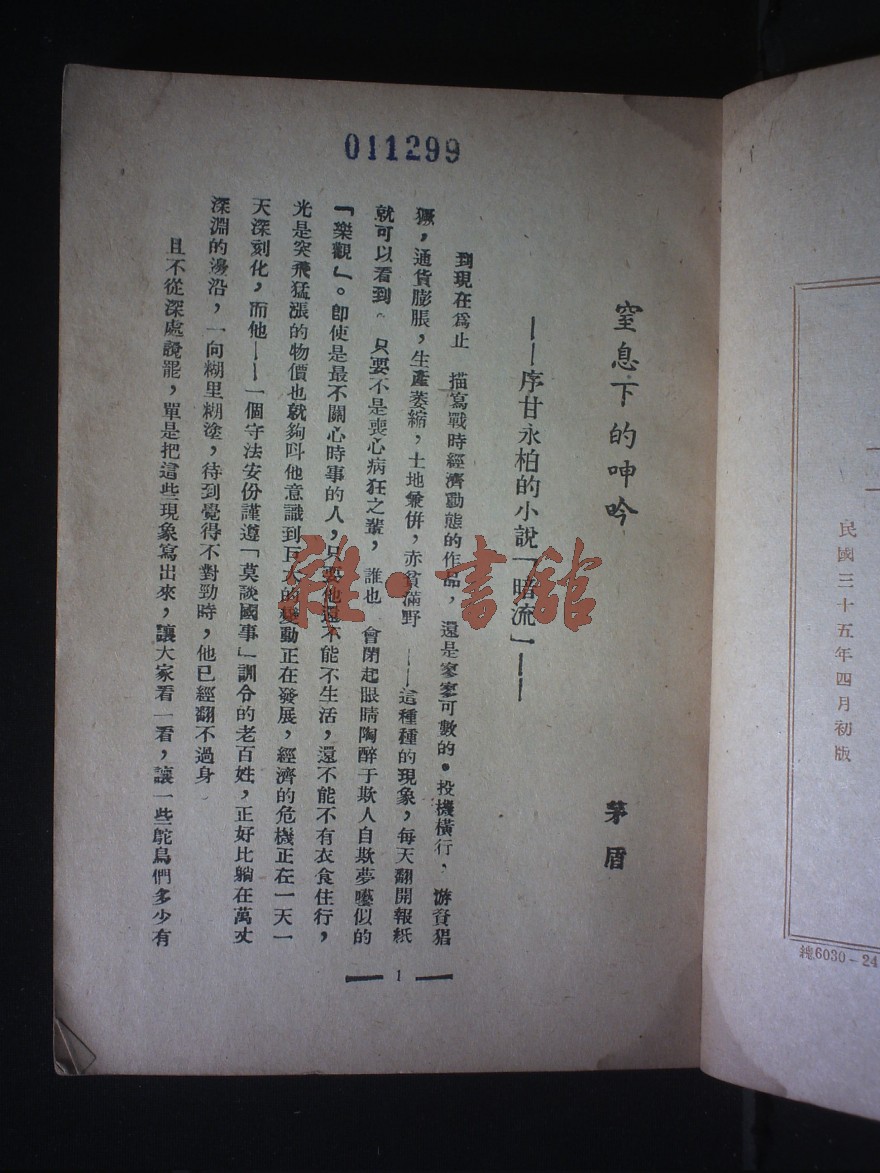 011299
窒息下的呻吟
——序甘永柏的小說「暗流」——
茅盾
到現在爲止 描寫戰時經濟動態的作品，還是寥寥可數的。投機橫行，游資猖
獗，通貨膨脹，生產萎縮，土地兼併，赤貧滿野 ——這種種的現象，每天翻開報紙
就可以看到。只要不是喪心病狂之輩，誰也 會閉起眼睛陶醉于欺人自欺夢囈似的
「樂觀」。卽使是最不關心時事的人，只要他還不能不生活，還不能不有衣食住行，
光是突飛猛漲的物價也就夠叫他意識到巨大的變動正在發展，經濟的危機正在一天一
天深刻化，而他——一個守法安份謹遵「莫談國事」訓令的老百姓，正好比躺在萬丈
深淵的邊沿，一向糊里糊塗，待到覺得不對勁時，他已經翻不過身
且不從深處說罷，單是把這些現象寫出來，讓大家看一看，讓一些鴕鳥們多少有
1
民國三十五年四月初版
總6030-24
雜·書館